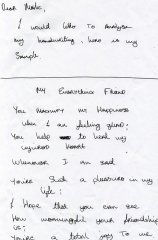 Dear Mark,
I would like to analyse
my handwriting, here is my
Sample
MY Everything Friend
You measure my Happiness
when I am feeling glum;
You help to heal my
injured Heart
Whenever I am sad
You're Such a pleasure in my
life;
I Hope that you can see
How meaningful your friendship
is;
You're a total joy To me